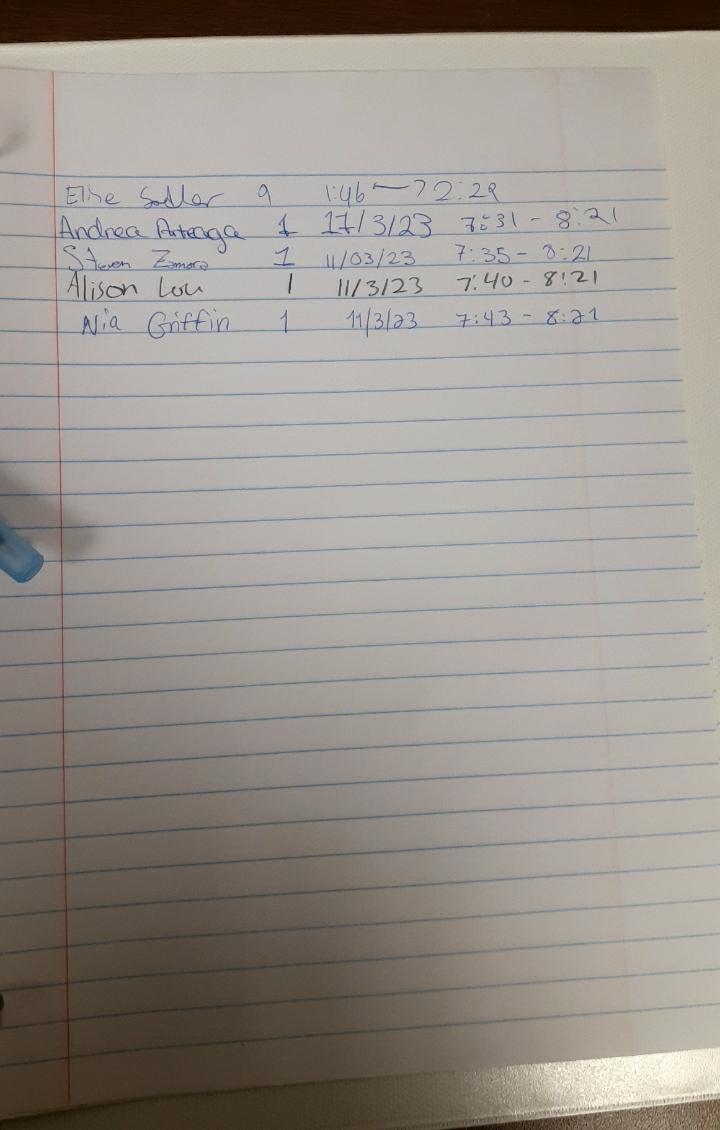 Elise Sadler 9 1:46 → 2:29
Andrea Arteaga 1 11/3/23 7:31 - 8:21
Steven Zamora 1 11/03/23 7:35 - 8:21
Alison Lou 1 11/3/23 7:40 - 8:21
Nia Griffin 1 11/3/23 7:43 - 8:21